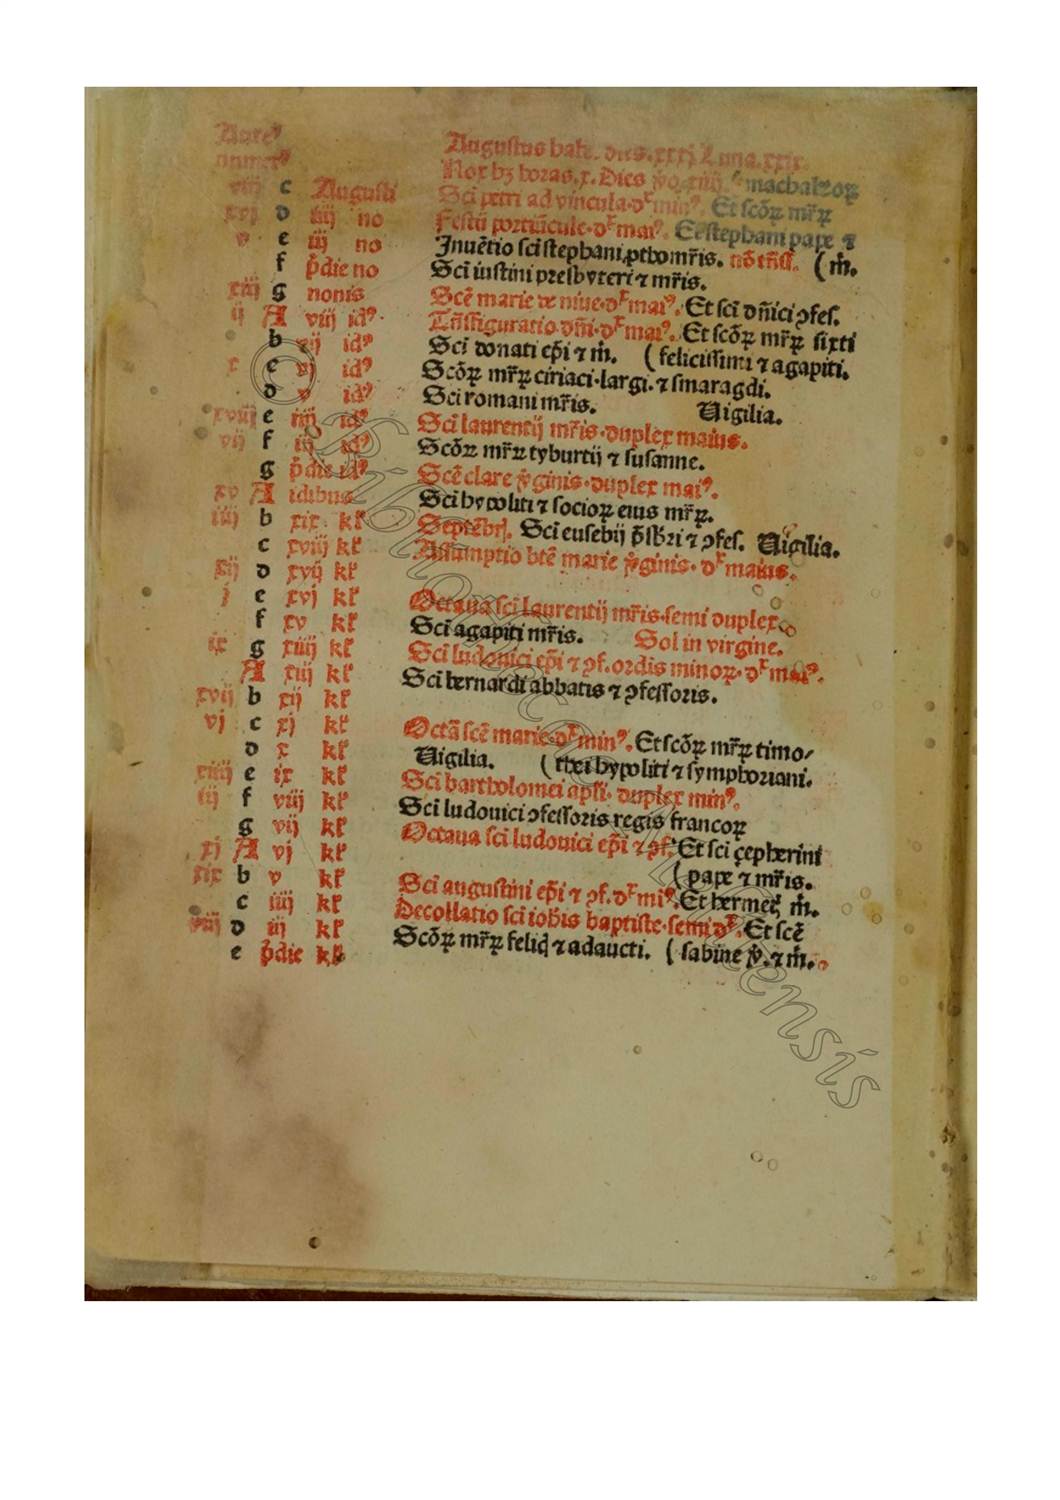 Aure⁹ Augustus habꝫ dies.xxxj Luna.xxix.
numer⁹ Nox hꝫ horas.x. Dies
viij c Augusti Sci petri ad vincula.dꝝ min⁹. Et scōꝝ mr̄ꝝ machabeoꝝ
xvj d iiij no Festū portiūcule.dꝝ mai⁹. Et stephani pape ⁊
v e iij no Inuētio sci stephani ꝓthomr̄is. nō (m̄.
f p̄die no Sci iustini presbyteri ⁊ mr̄is.
xiij g nonis Scē marie de niue.dꝝ mai⁹. Et sci dn̄ici ꝯfes.
ij A viij id⁹ Trāsfiguratio dn̄i.dꝝ mai⁹. Et scōꝝ mr̄ꝝ sixti
b vij id⁹ Sci donati ep̄i ⁊ m̄. (felicissimi ⁊ agapiti.
x c vj id⁹ Scōꝝ mr̄ꝝ ciriaci.largi.⁊ smaragdi.
d v id⁹ Sci romani mr̄is. Uigilia.
xviij e iiij id⁹ Sci laurentij mr̄is.duplex maius.
vij f iij id⁹ Scōꝝ mr̄ꝝ tyburtij ⁊ susanne.
g p̄die id⁹ Scē clare v̄ginis.duplex mai⁹.
xv A idibus Sci hypoliti ⁊ socioꝝ eius mr̄ꝝ.
iiij b xix kl̄ Septēbrĳ. Sci eusebij p̄sb̄ri ⁊ ꝯfes. Uigilia.
c xviij kl̄ Assumptio btē marie v̄ginis.dꝝ maius.
xij d xvij kl̄
j e xvj kl̄ Octaua sci laurentij mr̄is.semi duplex.
f xv kl̄ Sci agapiti mr̄is. Sol in virgine.
ix g xiiij kl̄ Sci ludouici ep̄i ⁊ ꝯf.ordis minoꝝ.dꝝ mai⁹.
A xiij kl̄ Sci bernardi abbatis ⁊ ꝯfessoris.
xvij b xij kl̄
vj c xj kl̄ Octā scē marie.dꝝ min⁹. Et scōꝝ mr̄ꝝ timo/
d x kl̄ Uigilia. (thei hypoliti ⁊ symphoriani.
xiiij e ix kl̄ Sci bartholomei apl̄i.duplex min⁹.
iij f viij kl̄ Sci ludouici ꝯfessoris regis francoꝝ
g vij kl̄ Octaua sci ludouici ep̄i ⁊ ꝯf. Et sci çepherini
xj A vj kl̄ (pape ⁊ mr̄is.
xix b v kl̄ Sci augustini ep̄i ⁊ ꝯf.dꝝ mi⁹. Et hermeꝭ m̄.
c iiij kl̄ Decollatio sci ioh̄is baptiste.semi dꝝ. Et scē
viij d iij kl̄ Scōꝝ mr̄ꝝ feliꝭ ⁊ adaucti. (sabine v̄.⁊ m̄.
e p̄die kl̄
© Bibliotheca